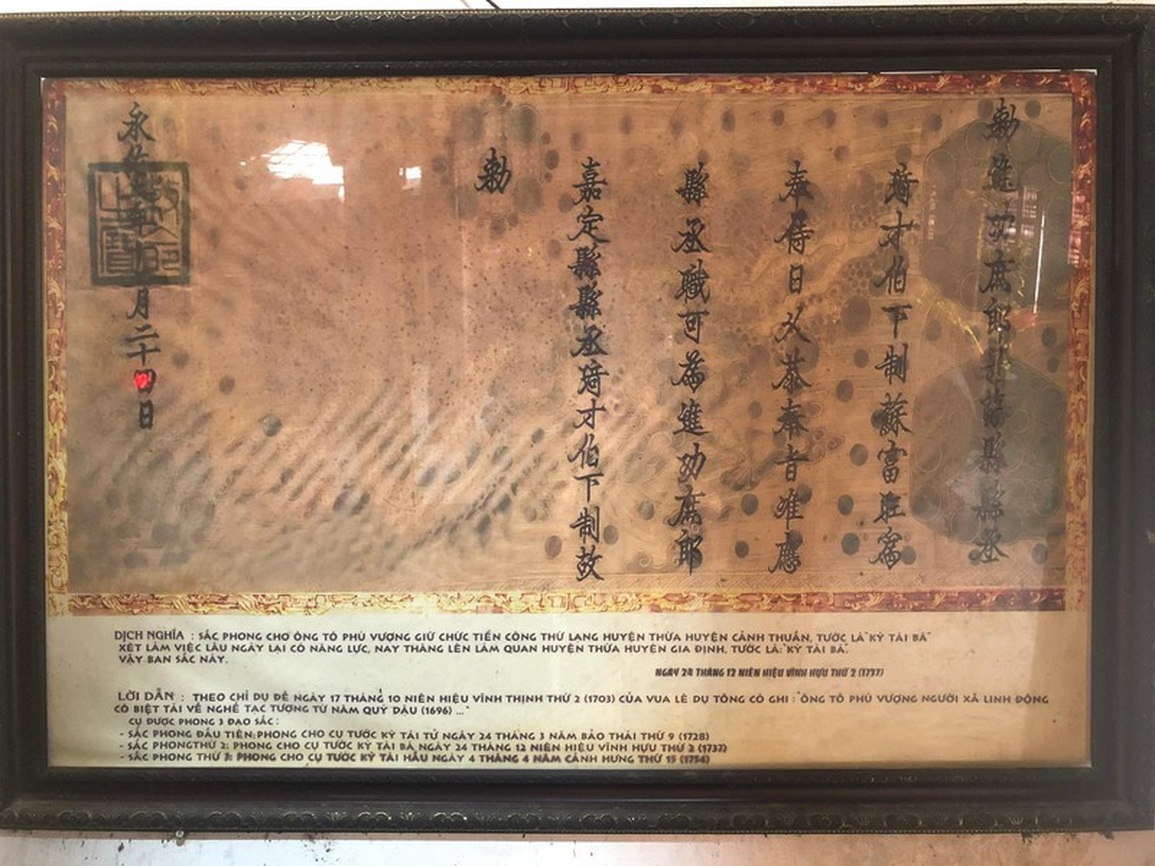 勅進功庶郎縣縣丞
琦才伯下制蘇富旺為
奉侍日久恭奉旨准應
縣丞職可為進功庶郎
嘉定縣縣丞琦才伯下制故
勅
永佑月二十四日
敕命之寶
DỊCH NGHĨA : SẮC PHONG CHO ÔNG TÔ PHÚ VƯỢNG GIỮ CHỨC TIẾN CÔNG THỨ LANG HUYỆN THỪA HUYỆN CẢNH THUẦN, TƯỚC LÀ "KỲ TÀI BÁ"
XÉT LÀM VIỆC LÂU NGÀY LẠI CÓ NĂNG LỰC, NAY THĂNG LÊN LÀM QUAN HUYỆN THỪA HUYỆN GIA ĐỊNH, TƯỚC LÀ:"KỲ TÀI BÁ".
VẬY BAN SẮC NÀY.
NGÀY 24 THÁNG 12 NIÊN HIỆU VĨNH HỰU THỨ 2 (1737)
LỜI DẪN : THEO CHỈ DỤ ĐỀ NGÀY 17 THÁNG 10 NIÊN HIỆU VĨNH THỊNH THỨ 2 (1703) CỦA VUA LÊ DỤ TÔNG CÓ GHI : "ÔNG TÔ PHÚ VƯỢNG NGƯỜI XÃ LINH ĐỘNG
CÓ BIỆT TÀI VỀ NGHỀ TẠC TƯỢNG TỪ NĂM QUÝ DẬU (1696) ..."
CỤ ĐƯỢC PHONG 3 ĐẠO SẮC :
- SẮC PHONG ĐẦU TIÊN: PHONG CHO CỤ TƯỚC KỲ TÀI TỬ NGÀY 24 THÁNG 3 NĂM BẢO THÁI THỨ 9 (1728)
- SẮC PHONGTHỨ 2: PHONG CHO CỤ TƯỚC KỲ TÀI BÁ NGÀY 24 THÁNG 12 NIÊN HIỆU VĨNH HỰU THỨ 2 (1737)
- SẮC PHONG THỨ 3: PHONG CHO CỤ TƯỚC KỲ TÀI HẦU NGÀY 4 THÁNG 4 NĂM CẢNH HƯNG THỨ 15 (1754)